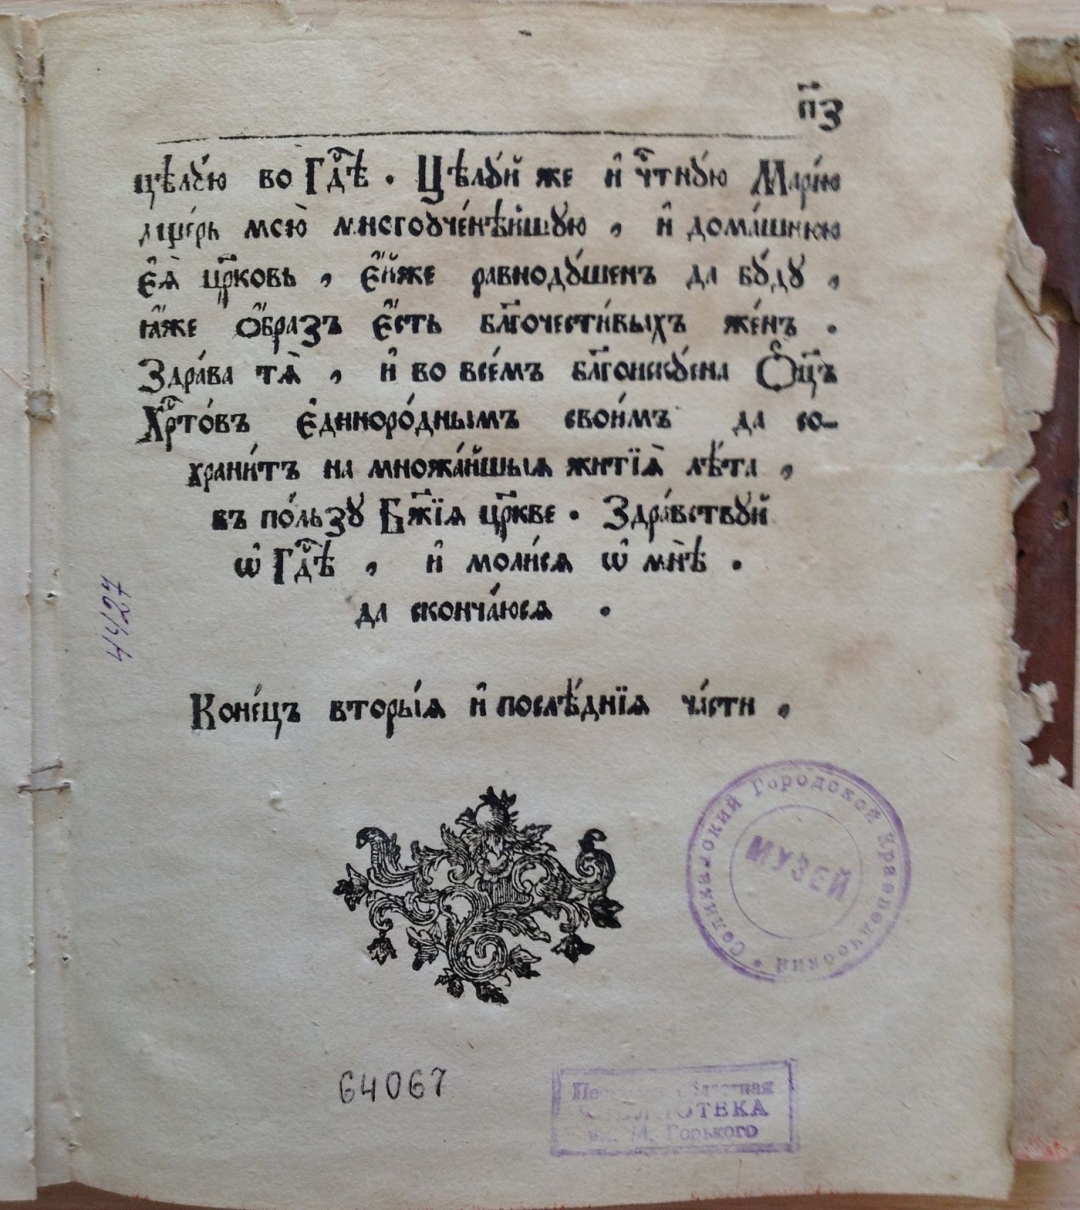 п҃з
цѣлꙋ́ю во Гдⷭ҇ѣ . Цѣлꙋ́й же и҆ чⷭ҇тнꙋ́ю Марі́ю
дще́рь мою̀ многоꙋче́нѣйшꙋю , и҆ дома́шнюю
є҆ѧ̀ цр҃ковь , є҆́йже равнодꙋ́шенъ да бꙋ́дꙋ ,
ꙗ҆́же ѻ҆́бразъ є҆́сть блг҃очести́выхъ же́нъ .
Здра́ва тѧ̀ , и҆ во все́мъ блг҃оискꙋ́сна Ѻ҆ц҃ъ
Хрⷭ҇то́въ є҆диноро́днымъ свои́мъ да со-
храни́тъ на множа́йшыѧ житїѧ̀ лѣ́та ,
въ по́льзꙋ Бж҃їѧ цр҃кве . Здра́вствꙋй
ѡ҆ Гдⷭ҇ѣ , и҆ моли́сѧ ѡ҆ мнѣ̀ .
да сконча́юсѧ .
Коне́цъ вторы́ѧ и҆ послѣ́днїѧ ча́сти ,
4427
Соликамский Городской Краеведческий *
МУЗЕЙ
64067
Областная
БИБЛИОТЕКА
им. М. Горького